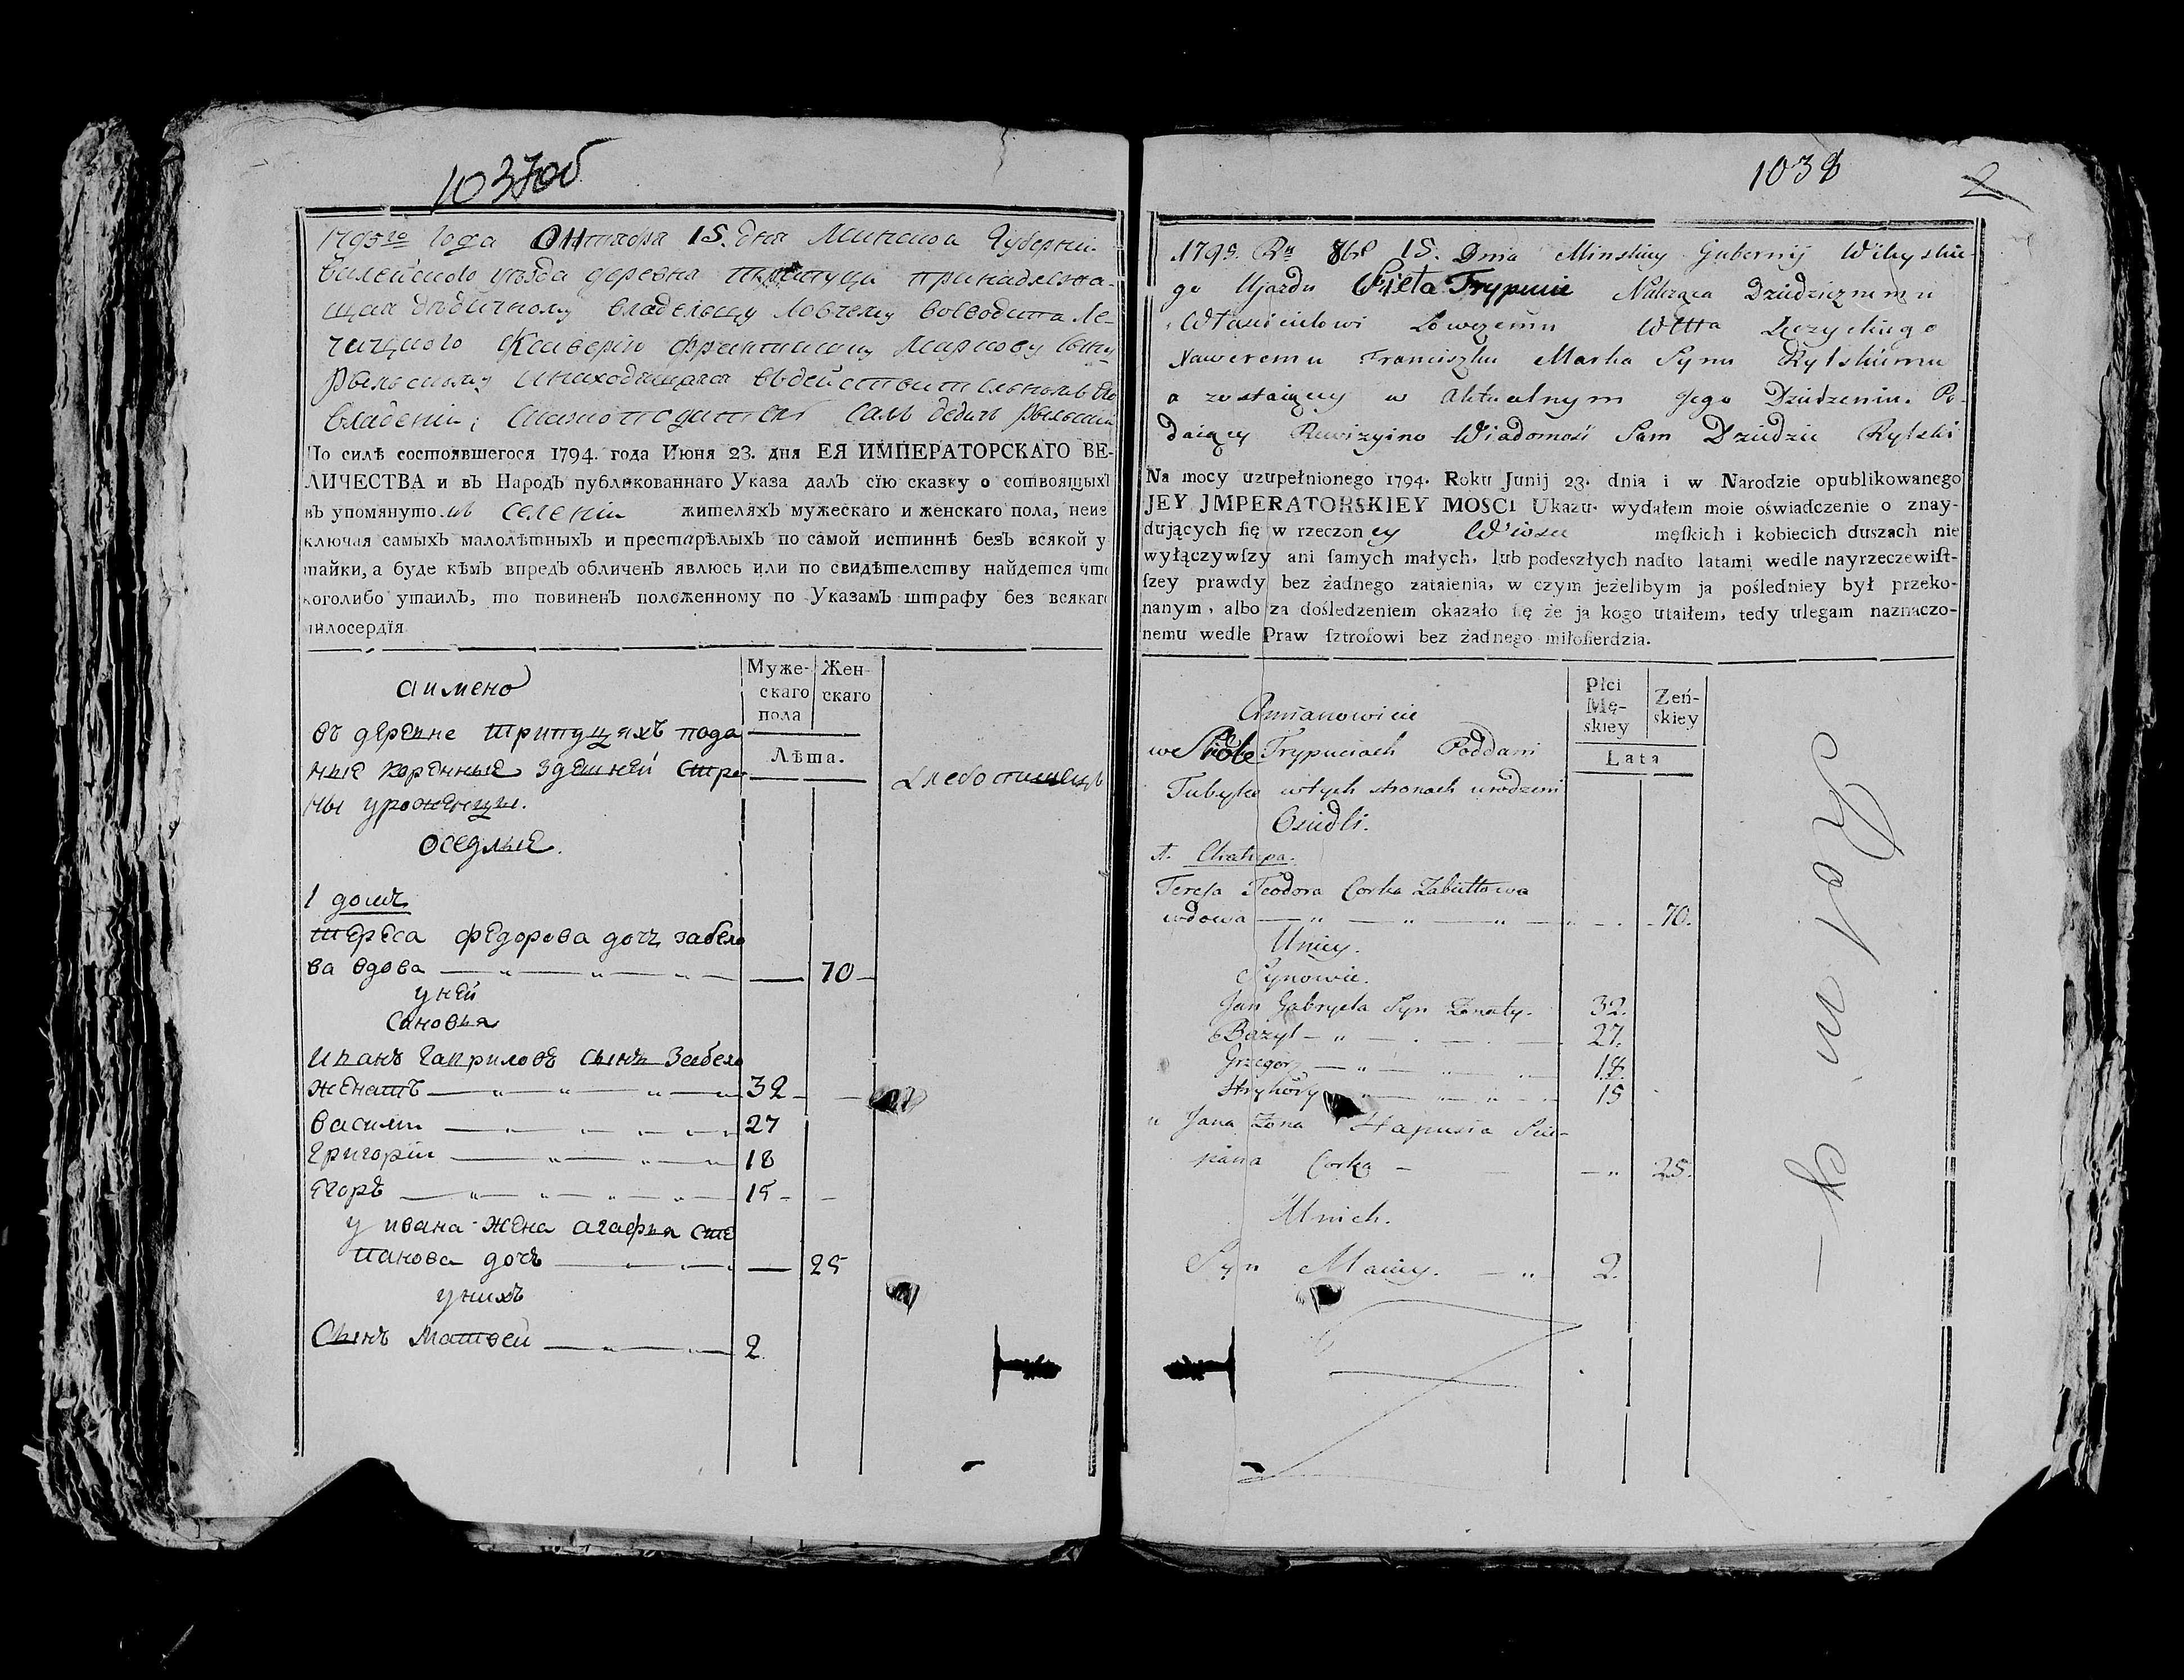 1037об
1795го года Октября 15. дня Минской Губернии
Вилейского уезда деревна принадлежа-
щая дедичному владельцу Ловчему воеводства Ле-
чицкого Ксаверию Францишку Маркову сыну
Рыльскому инаходящаяся вдействительномъ его
владении; сам дедич Рыльский
По силѣ состоявшегося 1794. года Июня 23. дня ЕЯ ИМПЕРАТОРСКАГО ВЕ-
ЛИЧЕСТВА и въ Народъ публикованнаго Указа далъ сїю сказку о сотвоящыхъ
въ упомянуто.мъ селении жителяхъ мужескаго и женскаго пола, неиз
ключая самыхъ малолѣтныхъ и престарѣлыхъ по самой истиннѣ безъ всякой у
тайки, а буде кѣмъ впредъ обличенъ явлюсь или по свидѣтелству найдется что
коголибо утаилъ, то повиненъ положенному по Указамъ штрафу без всякаго
милосердїя
Муже-
скаго
пола
Жен-
скаго
Лѣта.
аимено
въ деревне Трипуцяхъ пода
ные коренные здешней стра
ны уроженцы.
оседлые.
1 домъ
Тереса федорова дочь забело
ва вдова 70
уней
Сыновья
Иванъ Гавриловъ сынъ Забело
женатъ 32
Василии 27
Григории 18
Егоръ 15
у ивана жена агафия сте
панова дочь 25
унихъ
Сынъ Матвей 2
1038
2
1795. Ru 8br 15. Dnia Minskiey Gubernij Wileyskie-
go Ujazdu Trypucie Należąca Dziedzicznemu
Włascicielowi Łowczemu Wttta Łęczyckiego
Xaweremu Franciszku Marka Synu Rylskiemu
a zostaiący w aktualnym Jego Dziedzeniu. Po-
daiący Rewizyino Wiadomość Sam Dziedzic Rylski
Na mocy uzupełnionego 1794. Roku Junij 23. dnia i w Narodzie opublikowanego
JEY JMPERATORSKIEY MOSCI Ukazu, wydałem moie oświadczenie o znay-
dujących ſię w rzeczoney Wiosce męſkich i kobiecich duszach nie
wyłączywſzy ani ſamych małych, lub podeszłych nadto latami wedle nayrzeczewiſt-
ſzey prawdy bez żadnego zataienia, w czym jeżelibym ja pośledniey był przeko-
nanym, albo za dośledzeniem okazało ſię że ja kogo utaiłem, tedy ulegam naznaczo-
nemu wedle Praw ſztroſowi bez żadnego miłoſierdzia.
Płci
Mę-
skiey
Zeń-
skiey
Lata
Amianowicie
we Trypuciach Poddani
Tubylce wtych stronach urodzeni
Osiedli.
1. Chatupa.
Teresa Teodora Corka Zabiełłowa
wdowa 70.
Uniey.
Synowie.
Jan Gabryela Syn Zonaty. 32.
Bazyl 27.
Grzegorz 18.
Hryhory 15
u Jana Zona Hapusia Scie-
pana Corka 25.
Unich.
Syn Maciey. 2.